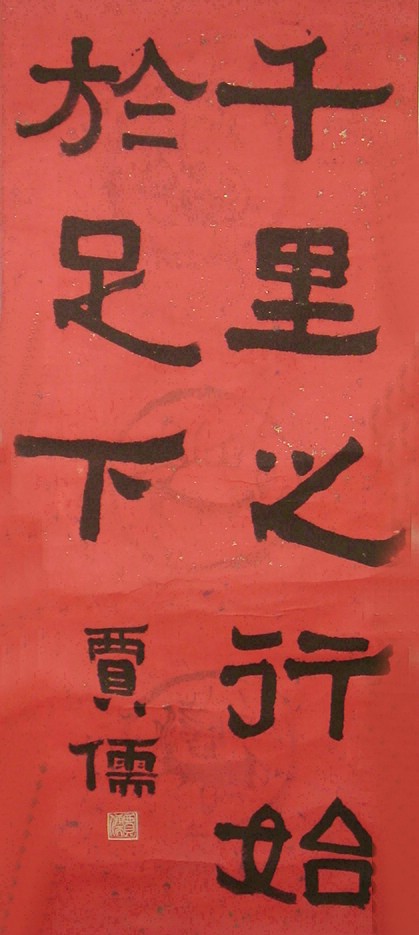 千里之行始
於足下
賈儒